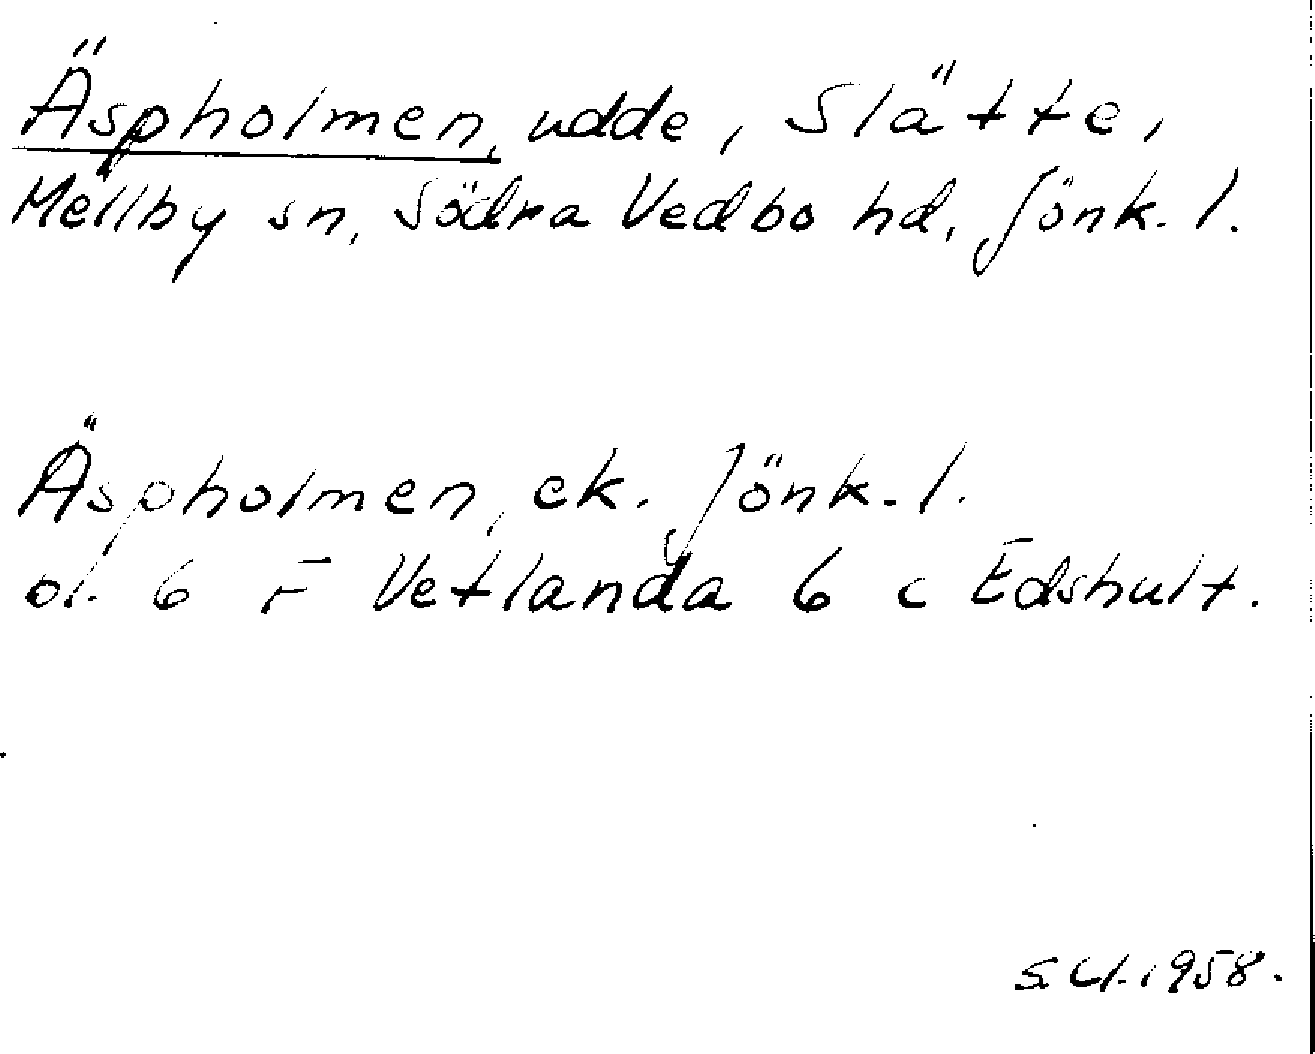 Äspholmen, udde, Slätte,
Mellby sn, Södra Vedbo hd, Jönk. l.
Äspholmen, ek. Jönk. l.
bl. 6 F Vetlanda 6 c Edshult.
1958.